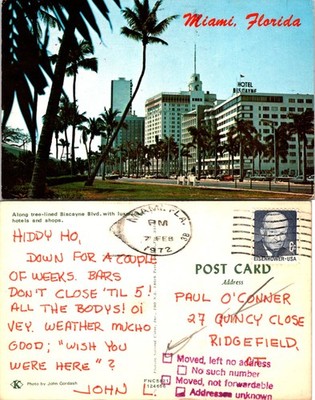 Miami, Florida
HOTEL
BISCAYNE
Along tree-lined Biscayne Blvd. with
hotels and shops.
HIDDY HO,
DOWN FOR A COUPLE
OF WEEKS. BARS
DON'T CLOSE 'TIL 5!
ALL THE BODYS! OI
VEY. WEATHER MUCHO
GOOD; "WISH YOU
WERE HERE"?
JOHN L.
K
Photo by John Gorbach
MIAMI, FLA.
PM
7 FEB
1972
EISENHOWER·USA
POST CARD
Address
PAUL O'CONNER
27 QUINCY CLOSE
RIDGEFIELD,
CT
Moved, left no address
No such number
Moved, not forwardable
Addressee unknown